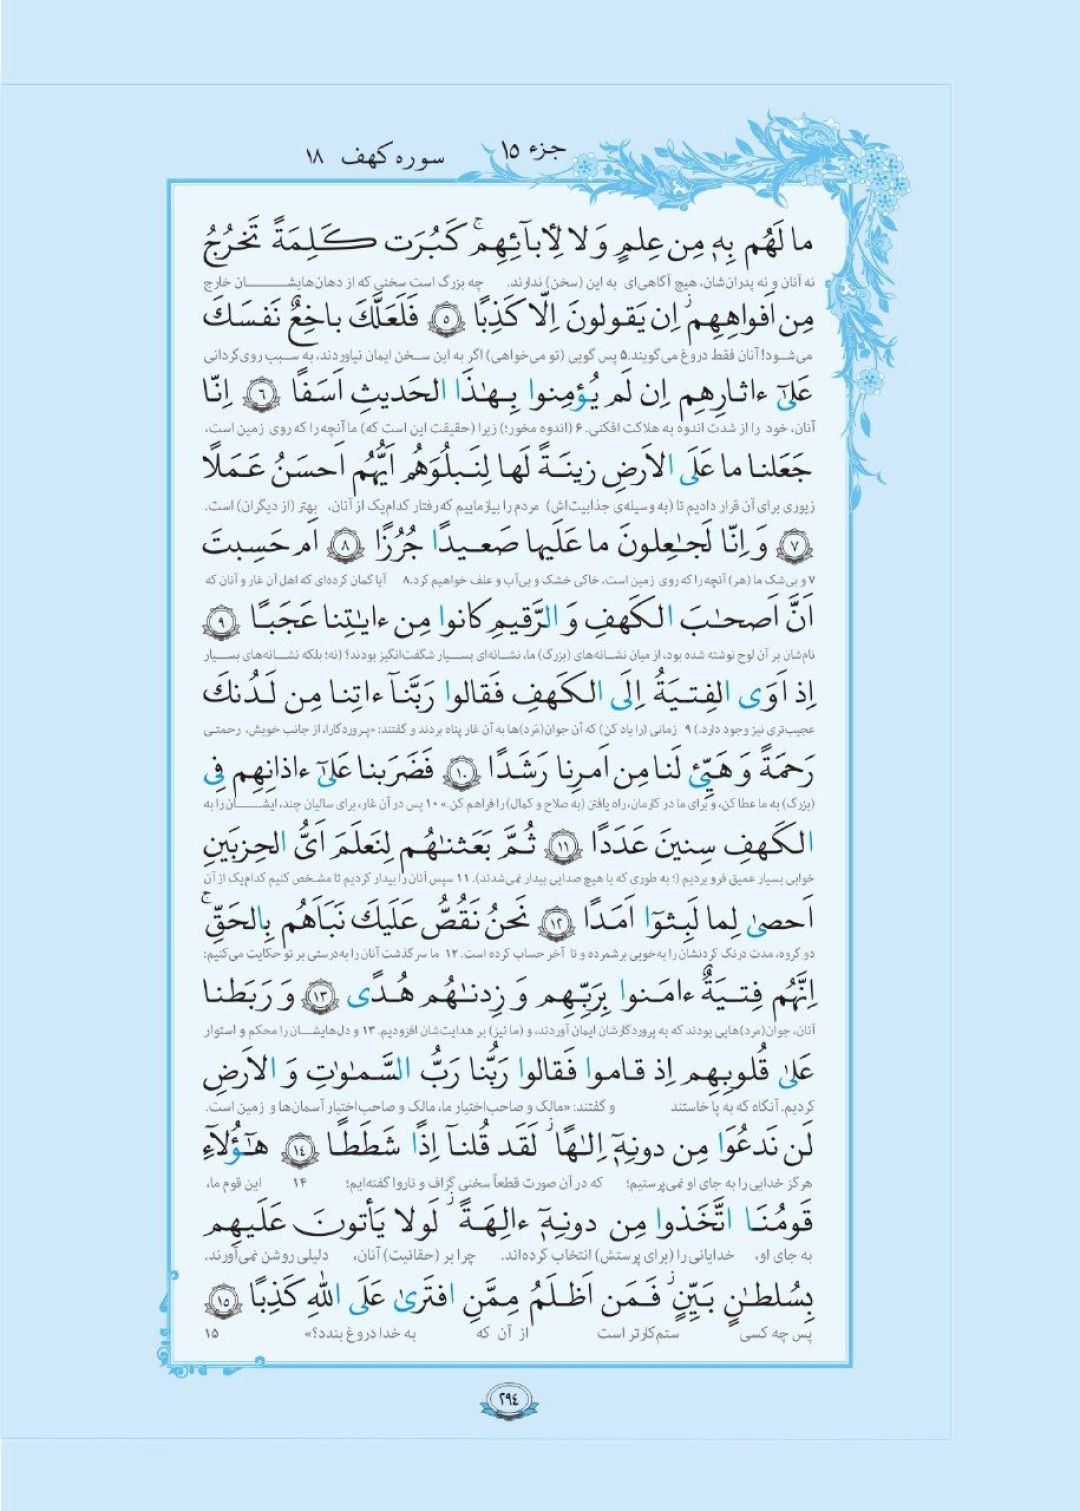 جزء ۱۵
سوره کهف ۱۸
ما لَهُم بِهٖ مِن عِلمٍ وَ لا لِأبآئِهِم ۚ كَبُرَت كَلِمَةً تَخرُجُ
نه آنان و نه پدران‌شان، هیچ آگاهی‌ای به این (سخن) ندارند. چه بزرگ است سخنی که از دهان‌هایشان خارج
مِن اَفواهِهِم ۚ اِن يَقولونَ اِلّا كَذِبًا ۵ فَلَعَلَّكَ باخِعٌ نَفسَكَ
می‌شود! آنان فقط دروغ می‌گویند. ۵ پس گویی (تو می‌خواهی) اگر به این سخن ایمان نیاوردند، به سبب روی‌گردانی
عَلىٰٓ ءاثارِهِم اِن لَم يُؤمِنوا بِهٰذَا الحَديثِ اَسَفًا ۶ اِنّا
آنان، خود را از شدت اندوه به هلاکت افکنی. ۶ (اندوه مخور؛) زیرا (حقیقت این است که) ما آنچه را که روی زمین است،
جَعَلنا ما عَلَى الاَرضِ زينَةً لَها لِنَبلُوَهُم اَيُّهُم اَحسَنُ عَمَلًا
زیوری برای آن قرار دادیم تا (به وسیله‌ی جذابیت‌اش) مردم را بیازماییم که رفتار کدام‌یک از آنان، بهتر (از دیگران) است.
۷ وَ اِنّا لَجٰعِلونَ ما عَلَيها صَعيدًا جُرُزًا ۸ اَم حَسِبتَ
۷ و بی‌شک ما (هر) آنچه را که روی زمین است، خاکی خشک و بی‌آب و علف خواهیم کرد. ۸ آیا گمان کرده‌ای که اهل آن غار و آنان که
اَنَّ اَصحٰبَ الكَهفِ وَ الرَّقيمِ كانوا مِن ءايٰتِنا عَجَبًا ۹
نام‌شان بر آن لوح نوشته شده بود، از میان نشانه‌های (بزرگ) ما، نشانه‌ای بسیار شگفت‌انگیز بودند؟ (نه؛ بلکه نشانه‌های بسیار
اِذ اَوَى الفِتيَةُ اِلَى الكَهفِ فَقالوا رَبَّنآ ءاتِنا مِن لَدُنكَ
عجیب‌تری نیز وجود دارد.) ۹ زمانی (را یاد کن) که آن جوان(مَرد)ها به آن غار پناه بردند و گفتند: «پروردگارا، از جانب خویش، رحمتی
رَحمَةً وَ هَيِّئ لَنا مِن اَمرِنا رَشَدًا ۱۰ فَضَرَبنا عَلىٰٓ ءاذانِهِم فِى
(بزرگ) به ما عطا کن، و برای ما در کارمان، راه یافتن (به صلاح و کمال) را فراهم کن.» ۱۰ پس در آن غار، برای سالیان چند، ایشان را به
الكَهفِ سِنينَ عَدَدًا ۱۱ ثُمَّ بَعَثنٰهُم لِنَعلَمَ اَىُّ الحِزبَينِ
خوابی بسیار عمیق فرو بردیم (؛ به طوری که با هیچ صدایی بیدار نمی‌شدند). ۱۱ سپس آنان را بیدار کردیم تا مشخص کنیم کدام‌یک از آن
اَحصىٰ لِما لَبِثوٓا اَمَدًا ۱۲ نَحنُ نَقُصُّ عَلَيكَ نَبَاَهُم بِالحَقِّ ۚ
دو گروه، مدت درنگ کردنشان را به‌خوبی برشمرده و تا آخر حساب کرده است. ۱۲ ما سرگذشت آنان را به‌درستی بر تو حکایت می‌کنیم:
اِنَّهُم فِتيَةٌ ءامَنوا بِرَبِّهِم وَ زِدنٰهُم هُدًى ۱۳ وَ رَبَطنا
آنان، جوان(مرد)هایی بودند که به پروردگارشان ایمان آوردند، و (ما نیز) بر هدایت‌شان افزودیم. ۱۳ و دل‌هایشان را محکم و استوار
عَلىٰ قُلوبِهِم اِذ قاموا فَقالوا رَبُّنا رَبُّ السَّمٰوٰتِ وَ الاَرضِ
کردیم. آنگاه که به پا خاستند و گفتند: «مالک و صاحب‌اختیار ما، مالک و صاحب‌اختیار آسمان‌ها و زمین است.
لَن نَدعُوَا مِن دونِهٖٓ اِلٰهًا ۖ لَقَد قُلنآ اِذًا شَطَطًا ۱۴ هٰٓؤُلآءِ
هرگز خدایی را به جای او نمی‌پرستیم؛ که در آن صورت قطعاً سخنی گزاف و ناروا گفته‌ایم؛ ۱۴ این قوم ما،
قَومُنَا اتَّخَذوا مِن دونِهٖٓ ءالِهَةً ۖ لَولا يَأتونَ عَلَيهِم
به جای او، خدایانی را (برای پرستش) انتخاب کرده‌اند. چرا بر (حقانیت) آنان، دلیلی روشن نمی‌آورند.
بِسُلطٰنٍ بَيِّنٍ ۖ فَمَن اَظلَمُ مِمَّنِ افتَرىٰ عَلَى اللّٰهِ كَذِبًا ۱۵
پس چه کسی ستم‌کارتر است از آن که به خدا دروغ بندد؟» ۱۵
۲۹٤